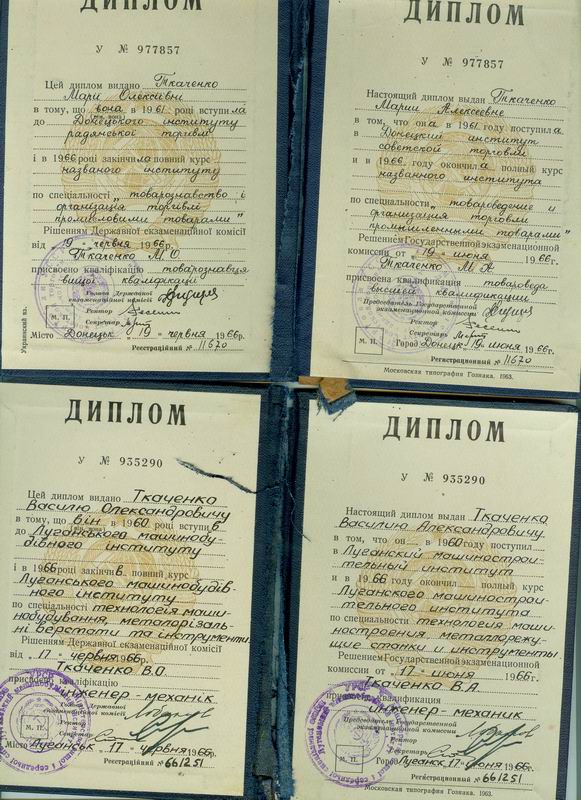 ДИПЛОМ
У № 977857
Цей диплом видано Ткаченко
Марії Олексіївні
в тому, що вона в 1961 році вступила
до Донецького інституту
радянської торгівлі
і в 1966 році закінчила повний курс
названого інституту
по спеціальності „товарознавство і
організація торгівлі
промисловими товарами"
Рішенням Державної екзаменаційної комісії
від „19" червня 1966р.
Ткаченко М. О.
присвоєно кваліфікацію товарознавця
вищої кваліфікації
Голова Державної
екзаменаційної комісії
Ректор
Секретар
М. П.
Місто Донецьк „19" червня 1966р.
Реєстраційний № 11670
Украинский яз.
ДИПЛОМ
У № 977857
Настоящий диплом выдан Ткаченко
Марии Алексеевне
в том, что она в 1961 году поступила
в Донецкий институт
советской торговли
и в 1966 году окончила полный курс
названного института
по специальности „товароведение и
организация торговли
промышленными товарами"
Решением Государственной экзаменационной
комиссии от „19" июня 1966г.
Ткаченко М. А
присвоена квалификация товароведа
высшей квалификации
Председатель Государственной
экзаменационной комиссии
Ректор
Секретарь
М. П.
Город Донецк 19 июня 1966г.
Регистрационный № 11670
Московская типография Гознака. 1963.
ДИПЛОМ
У № 935290
Цей диплом видано Ткаченко
Василю Олександровичу
в тому, що він в 1960 році вступив
(він, вона)
до Луганського машинобу-
дівного інституту
і в 1966 році закінчив повний курс
Луганського машинобудів-
ного інституту
по спеціальності технологія маши-
нобудування, металорізаль-
ні верстати та інструменти
Рішенням Державної екзаменаційної комісії
від „17" червня 1966р.
Ткаченко В.О.
присвоєно кваліфікацію
інженер-механік
Голова Державної
екзаменаційної комісії
Ректор
Секретар
М. П.
Місто Луганськ „17" червня 1966р.
Реєстраційний № 661251
ДИПЛОМ
У № 935290
Настоящий диплом выдан Ткаченко
Василию Александровичу
в том, что он в 1960 году поступил
в Луганский машинострои-
тельный институт
и в 1966 году окончил полный курс
Луганского машинострои-
тельного института
по специальности технология маши-
ностроения, металлорежу-
щие станки и инструменты
Решением Государственной экзаменационной
комиссии от „17" июня 1966г.
Ткаченко В.А.
присвоена квалификация
инженер-механик
Председатель Государственной
экзаменационной комиссии
Ректор
Секретарь
М. П.
Город Луганск „17" июня 1966г.
Регистрационный № 661251
Московская типография Гознака. 1963.